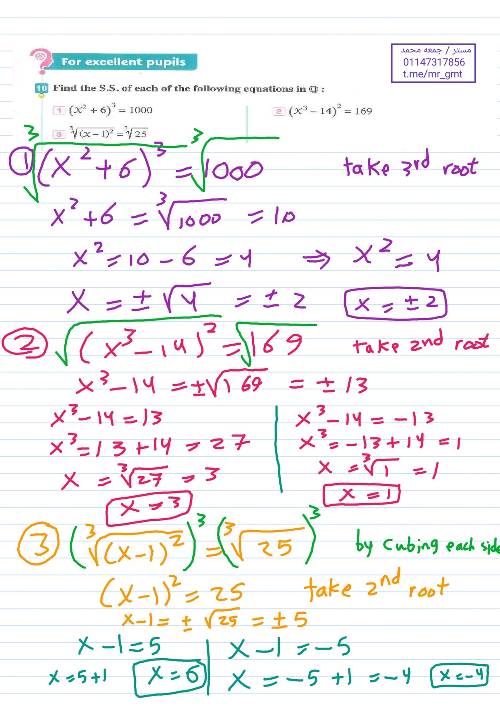 مستر / جمعه محمد
01147317856
t.me/mr_gmt
For excellent pupils
10 Find the S.S. of each of the following equations in ℚ :
1 (x² + 6)³ = 1000
2 (x³ – 14)² = 169
3 ∛(x – 1)² = ∛25
① ∛(x² + 6)³ = ∛1000 take 3rd root
x² + 6 = ∛1000 = 10
x² = 10 - 6 = 4 ⇒ x² = 4
x = ±√4 = ± 2 x = ± 2
② √(x³ - 14)² = √169 take 2nd root
x³ - 14 = ±√169 = ± 13
x³ - 14 = 13
x³ = 13 + 14 = 27
x = ∛27 = 3
x = 3
x³ - 14 = -13
x³ = -13 + 14 = 1
x = ∛1 = 1
x = 1
③ (∛(x-1)²)³ = (∛25)³ by cubing each side
(x-1)² = 25 take 2nd root
x-1 = ± √25 = ± 5
x - 1 = 5
x = 5 + 1 x = 6
x - 1 = -5
x = -5 + 1 = -4 x = -4